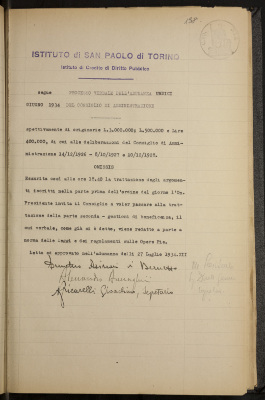 138
ISTITUTO di SAN PAOLO di TORINO
Istituto di Credito di Diritto Pubblico
segue PROCESSO VERBALE DELL'ADUNANZA UNDICI
GIUGNO 1934 DEL CONSIGLIO DI AMMINISTRAZIONE
spettivamente di originarie L.1.000.000; 1.500.000 e Lire
400.000, di cui alle deliberazioni del Consiglio di Ammi-
nistrazione 14/12/1926 - 8/10/1927 e 20/12/1928.
Esaurita così alle ore 18.40 la trattazione degli argomen-
ti inscritti nella parte prima dell'ordine del giorno l'On.
Presidente invita il Consiglio a voler passare alla trat-
tazione della parte seconda - gestioni di beneficenza, il
cui verbale, come già si è detto, viene redatto a parte a
norma delle Leggi e dei regolamenti sulle Opere Pie.
Letto ed approvato nell'adunanza delli 27 luglio 1934.XII
Demetrio Asinari di Bernezzo
Alessandro
Ricarelli Girardino, Segretario